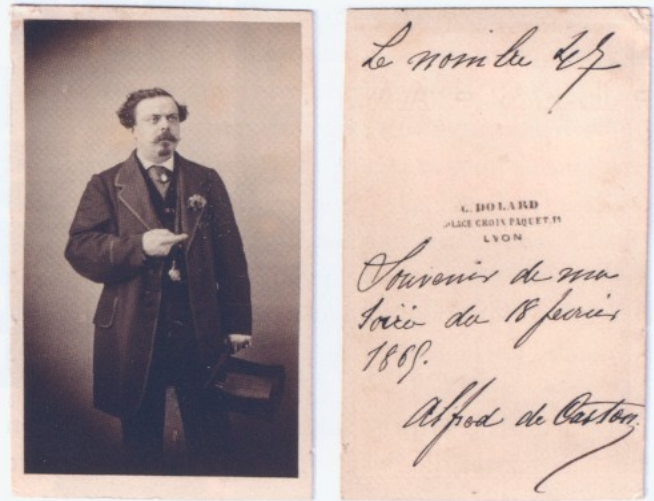 Le nombre 27
C. DOLARD
PLACE CROIX PAQUET, 11
LYON
Souvenir de ma
Soirée du 18 février
1865.
Alfred de Caston